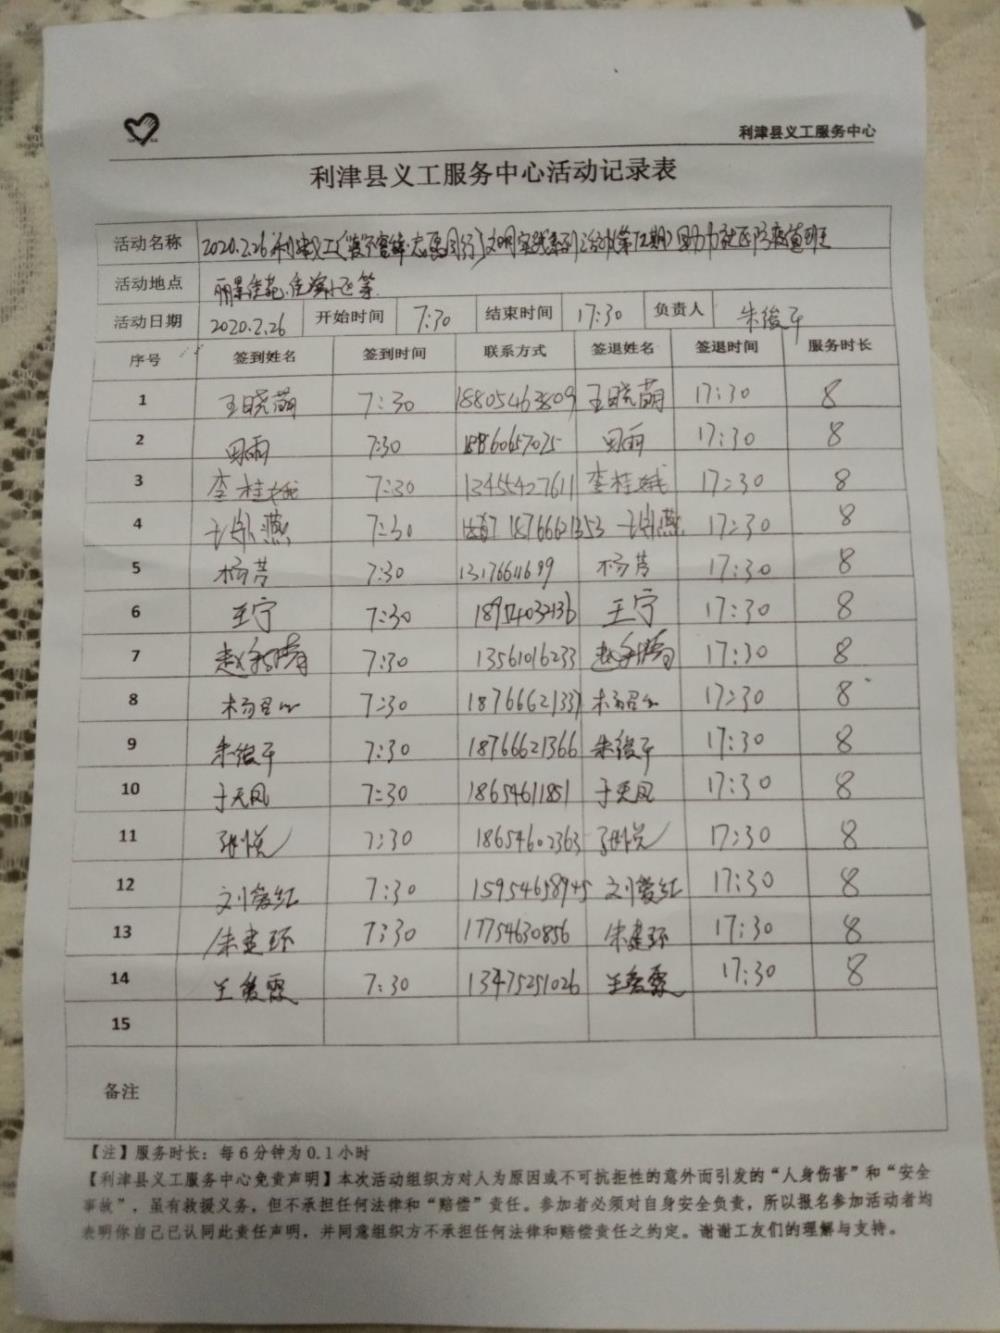 利津县义工服务中心
利津县义工服务中心活动记录表
活动名称 2020.2.26 利津义工(学雷锋·志愿同行)文明实践系列活动(第12期)助力社区防疫值班
活动地点 丽景佳苑、佳滨小区等
活动日期 2020.2.26 开始时间 7:30 结束时间 17:30 负责人 朱俊平
序号 签到姓名 签到时间 联系方式 签退姓名 签退时间 服务时长
1 王晓萌 7:30 18805463809 王晓萌 17:30 8
2 田雨 7:30 18860657025 田雨 17:30 8
3 李桂娥 7:30 13455427611 李桂娥 17:30 8
4 燕 7:30 18766621353 燕 17:30 8
5 杨芳 7:30 1317661699 杨芳 17:30 8
6 王宁 7:30 18954032136 王宁 17:30 8
7 赵 7:30 13561016233 赵 17:30 8
8 杨 7:30 18766621337 杨 17:30 8
9 朱俊平 7:30 18766621366 朱俊平 17:30 8
10 于天凤 7:30 18654611851 于天凤 17:30 8
11 张悦 7:30 18654602363 张悦 17:30 8
12 刘爱红 7:30 15954658945 刘爱红 17:30 8
13 朱建环 7:30 17754630856 朱建环 17:30 8
14 王爱霞 7:30 13475251026 王爱霞 17:30 8
15
备注
【注】服务时长：每 6 分钟为 0.1 小时
【利津县义工服务中心免责声明】本次活动组织方对人为原因或不可抗拒性的意外而引发的“人身伤害”和“安全
事故”，虽有救援义务，但不承担任何法律和“赔偿”责任。参加者必须对自身安全负责，所以报名参加活动者均
表明你自己已认同此责任声明，并同意组织方不承担任何法律和赔偿责任之约定。谢谢工友们的理解与支持。